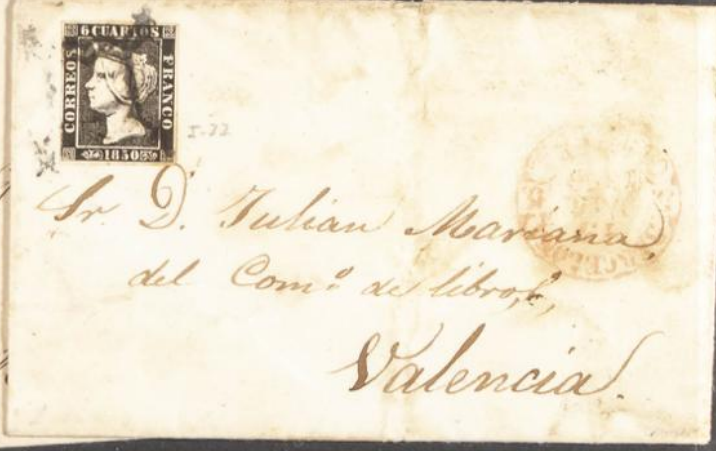 6 CUARTOS
CORREOS
FRANCO
1850
I-22
Sr. D. Julian Mariana,
del Com.º de libros,
Valencia.